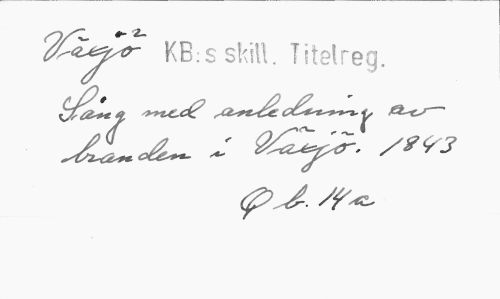 Växjö 2 KB:s skill. Titelreg.
Sång med anledning av
branden i Växjö. 1843
Q b. 14 a